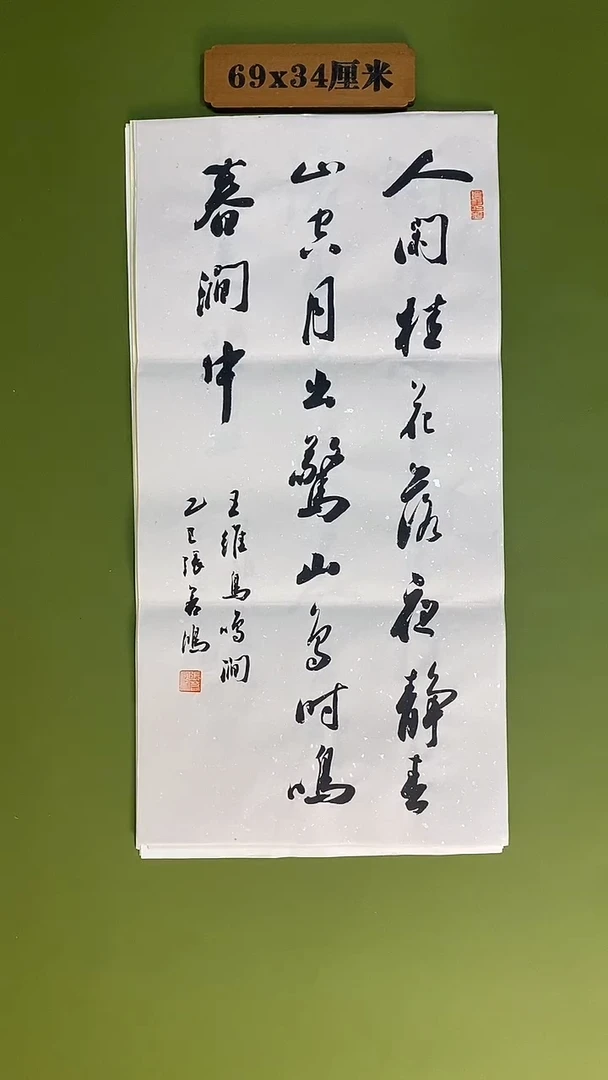 69x34厘米
人闲桂花落夜静春
山空月出驚山鸟时鳴
春澗中
王维鸟鸣涧
乙巳張若鴻